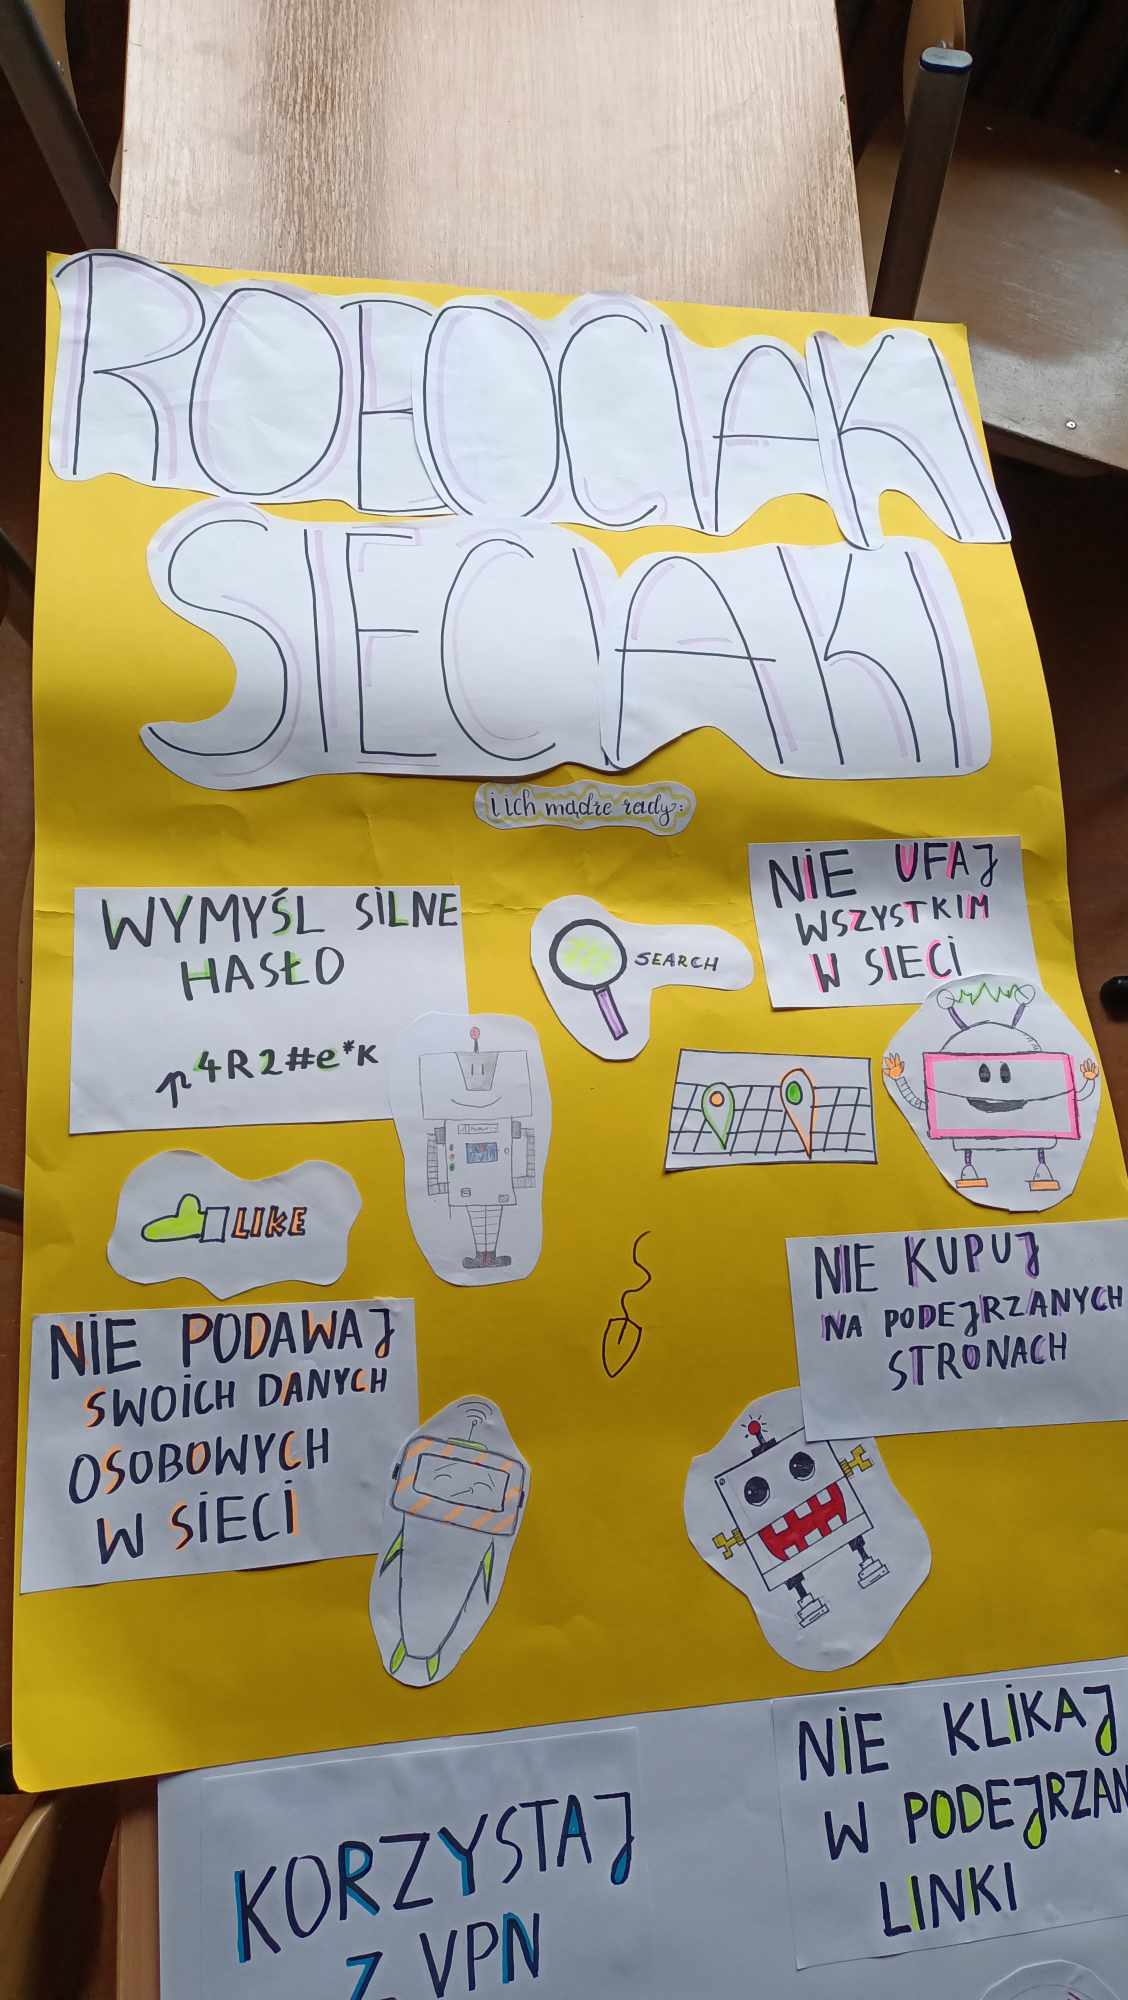 ROBOCIAKI
SIECIAKI
i ich mądre rady:
WYMYŚL SILNE
HASŁO
4R2#e*K
SEARCH
NIE UFAJ
WSZYSTKIM
W SIECI
LIKE
NIE PODAWAJ
SWOICH DANYCH
OSOBOWYCH
W SIECI
NIE KUPUJ
NA PODEJRZANYCH
STRONACH
NIE KLIKAJ
W PODEJRZAN
LINKI
KORZYSTAJ
Z VPN